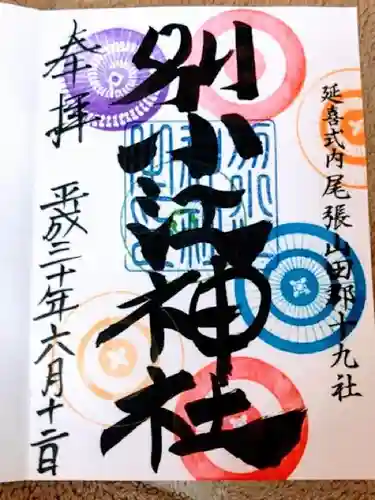 延喜式内尾張山田郡十九社
別小江神社
奉拝
平成三十年六月十二日